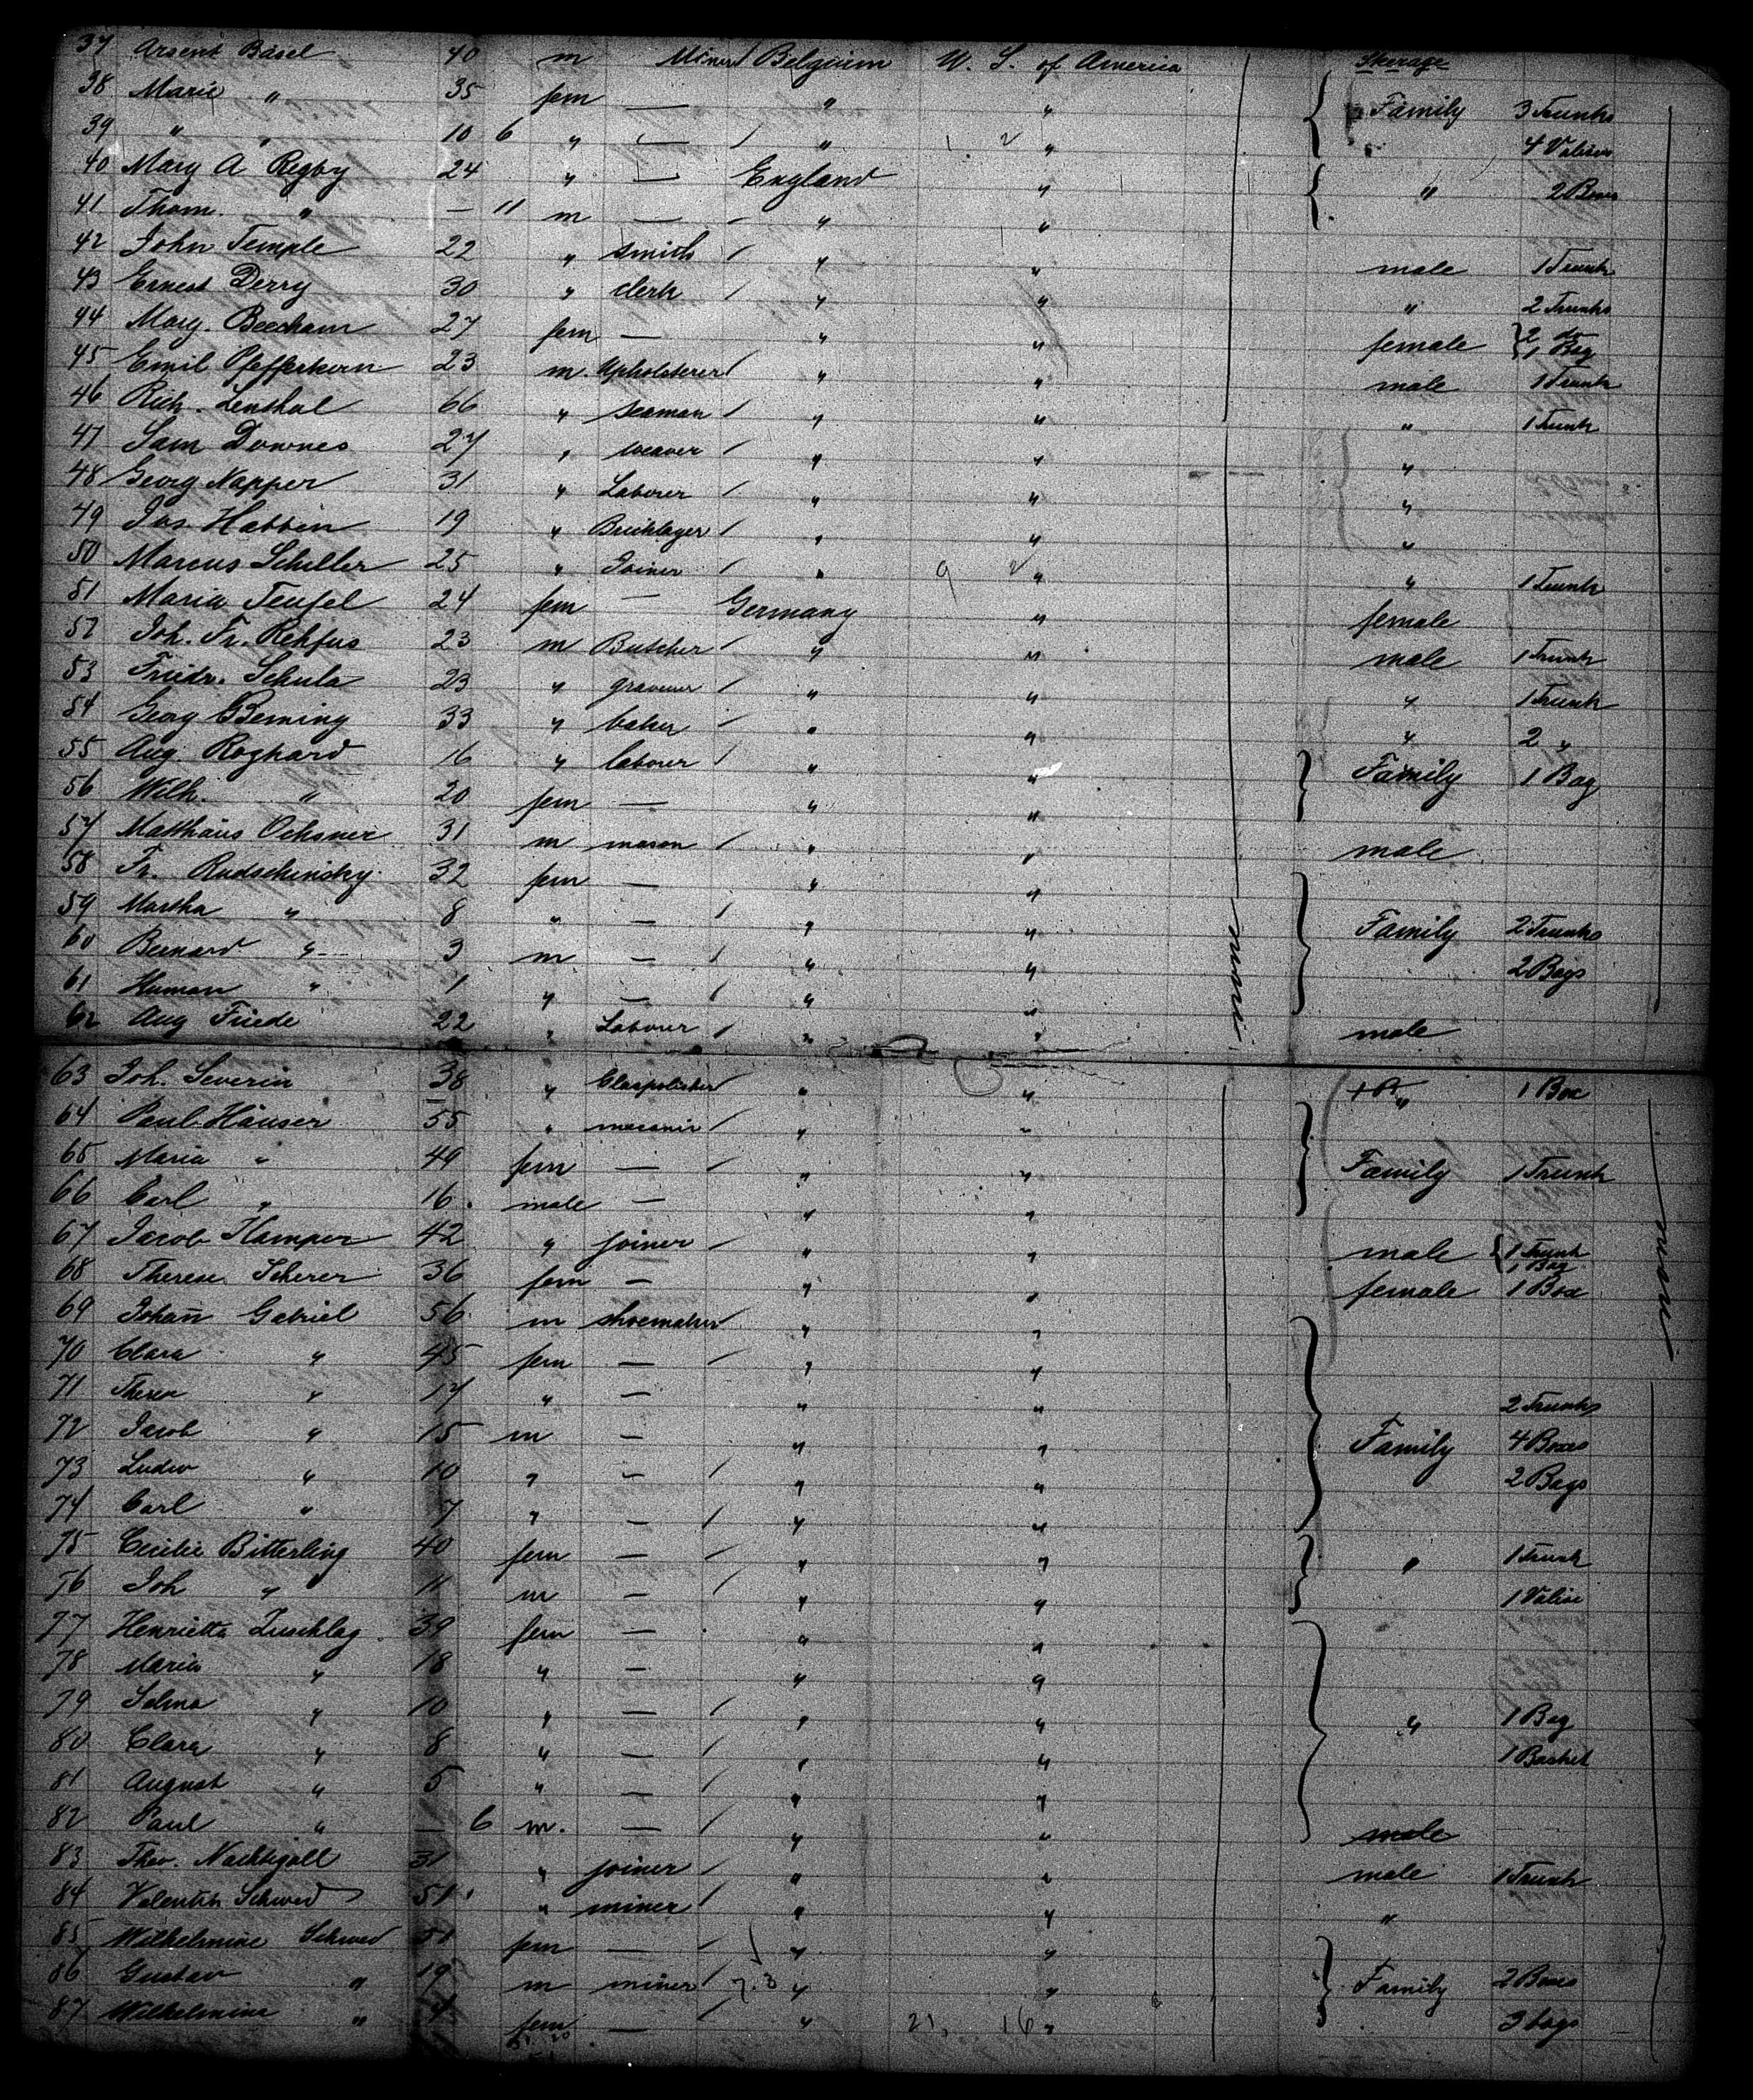 37 Arsent Basel 40 m Miner Belgium U. S. of America Steerage
38 Marie " 35 fem — " " Family 3 Trunks
39 " " 10 6 " — " " 4 Valises
40 Mary A Regby 24 " — England " " 2 Boxes
41 Thom. " — 11 m — " "
42 John Temple 22 " smith " " male 1 Trunk
43 Ernest Derry 30 " clerk " " " 2 Trunks
44 Mary. Beecham 27 fem — " " female 2 do 1 Bag
45 Emil Pfefferkorn 23 m. Upholsterer " " male 1 Trunk
46 Rich. Lenthal 66 " seaman " " " 1 Trunk
47 Sam Downes 27 " weaver " " "
48 Georg Napper 31 " Laborer " " "
49 Jas. Habbin 19 " Bricklayer " " "
50 Marcus Schiller 25 " Joiner " 9 2 " " 1 Trunk
51 Maria Teufel 24 fem — Germany " female
52 Joh. Fr. Rehfus 23 m Butscher " " male 1 Trunk
53 Friedr. Schula 23 " graveur " " " 1 Trunk
54 Georg Berning 33 " baker " " " 2 "
55 Aug. Roghard 16 " laborer " " Family 1 Bag
56 Wilh. " 20 fem — " "
57 Matthäus Ochsner 31 m mason " " male
58 Fr. Rudschinsky 32 fem — " "
59 Martha " 8 " — " " Family 2 Trunks
60 Bernard " 3 m — " " 2 Bags
61 Human " 1 " — " "
62 Aug Friede 22 " Labourer " " male
63 Joh. Severin 38 " Glaspolisher " " " 1 Box
64 Paul Häuser 55 " mecanic " "
65 Maria " 49 fem — " " Family 1 Trunk
66 Carl " 16. male — " "
67 Jacob Kamper 42 " joiner " " male 1 Trunk 1 Bag
68 Therese Scherer 36 fem — " " female 1 Box
69 Johann Gabriel 56 m shoemaker " "
70 Clara " 45 fem — " "
71 Theres " 17 " — " " 2 Trunks
72 Jacob " 15 m — " " Family 4 Boxes
73 Ludw " 10 " — " " 2 Bags
74 Carl " 7 " — " "
75 Cecilie Bitterling 40 fem — " " " 1 Trunk
76 Joh " 11 m — " " 1 Valise
77 Henrietta Zuschlag 39 fem — " "
78 Maria " 18 " — " "
79 Selma " 10 " — " " " 1 Bag
80 Clara " 8 " — " " 1 Basket
81 August " 5 " — " "
82 Paul " — 6 m. — " " male
83 Theo. Nachtigall 31 " joiner " " male 1 Trunk
84 Valentin Schwed 51 " miner " " "
85 Wilhelmine Schwed 51 fem — " "
86 Gustav " 19 m miner 7.3 " " Family 2 Boxes
87 Wilhelmine " 4 fem — " 21, 16 " 3 bags